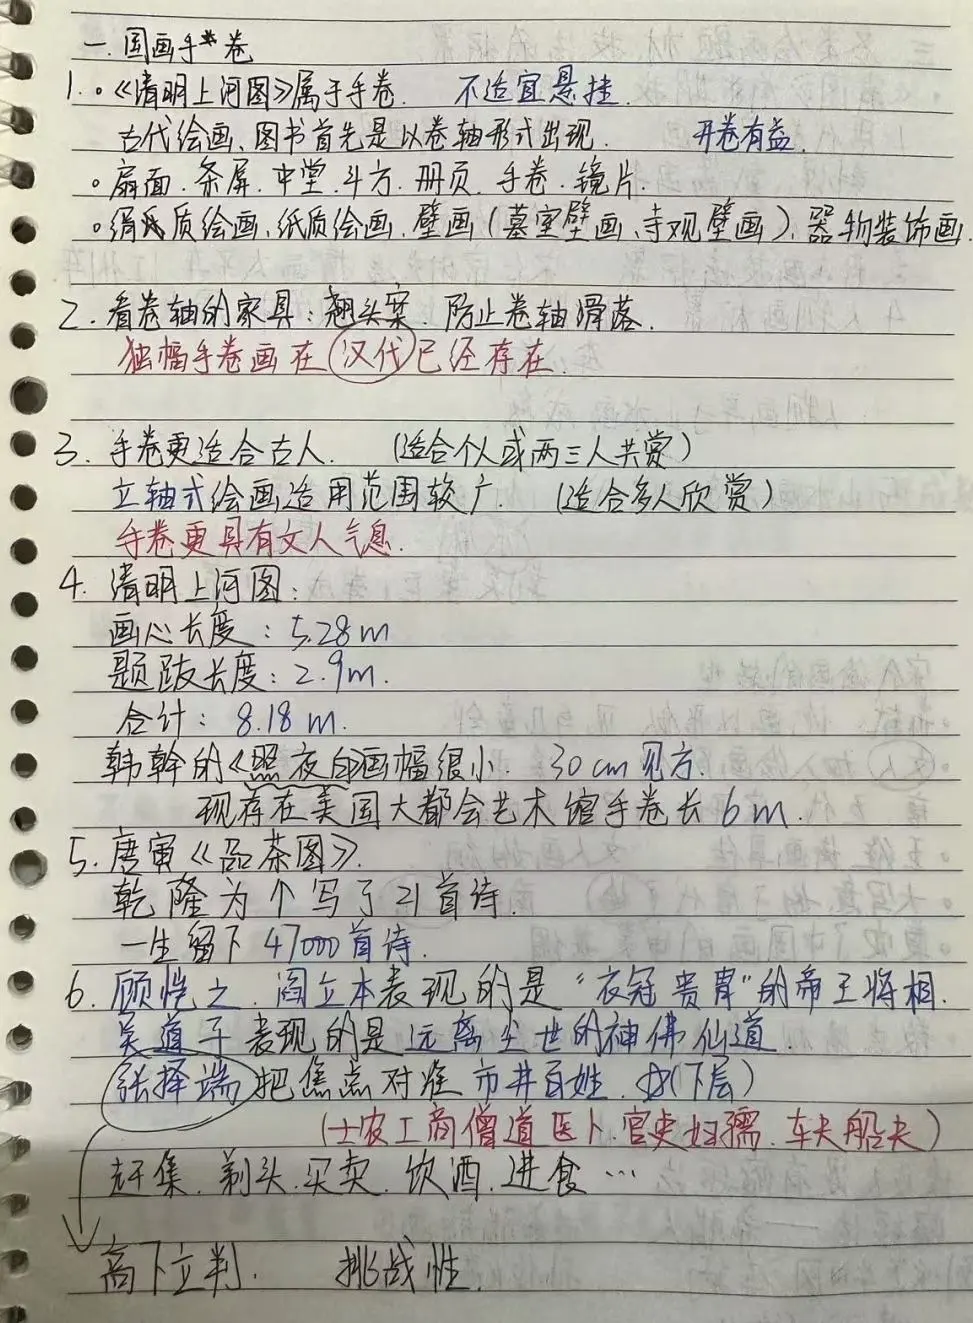 一.国画手卷
1.。《清明上河图》属于手卷. 不适宜悬挂.
古代绘画、图书首先是以卷轴形式出现. 开卷有益.
。扇面.条屏.中堂.斗方.册页.手卷.镜片.
。绢质绘画、纸质绘画、壁画(墓室壁画、寺观壁画)、器物装饰画.
2.看卷轴的家具:翘头案.防止卷轴滑落.
独幅手卷画在汉代已经存在.
3.手卷更适合古人. (适合个人或两三人共赏)
立轴式绘画适用范围较广. (适合多人欣赏)
手卷更具有文人气息.
4.清明上河图:
画心长度:5.28m
题跋长度:2.9m.
合计:8.18m.
韩幹的《照夜白画幅很小. 30cm见方.
现存在美国大都会艺术馆手卷长6m.
5.唐寅《品茶图》.
乾隆为个写了21首诗.
一生留下47000首诗.
6.顾恺之.阎立本表现的是“衣冠贵胄”的帝王将相.
吴道子表现的是远离尘世的神佛仙道.
张择端把焦点对准市井百姓.(下层)
(士农工商僧道医卜.官吏妇孺.车夫船夫)
赶集.剃头.买卖.饮酒.进食…
高下立判. 挑战性.